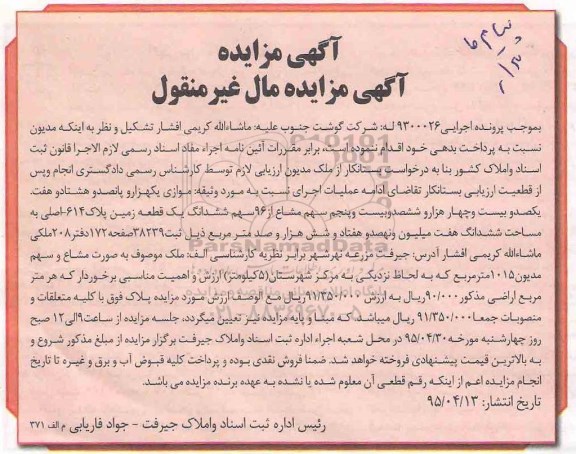 پیام ما
آگهی مزایده
آگهی مزایده مال غیر منقول
بموجب پرونده اجرایی ۹۳۰۰۰۲۶ له: شرکت گوشت جنوب علیه: ماشاءالله کریمی افشار تشکیل و نظر به اینکه مدیون
نسبت به پرداخت بدهی خود اقدام ننموده است، برابر مقررات آئین نامه اجراء مفاد اسناد رسمی لازم الاجرا قانون ثبت
اسناد واملاک کشور بنا به درخواست بستانکار از ملک مدیون ارزیابی لازم توسط کارشناس رسمی دادگستری انجام وپس
از قطعیت ارزیابی بستانکار تقاضای ادامه عملیات اجرای نسبت به مورد وثیقه: موازی یکهزارو پانصدو هشتادو هفت.
یکصدو بیست وچهار هزارو ششصدوبیست وپنجم سهم مشاع از۹۶سهم ششدانگ یک قطعه زمین پلاک۶۱۴-اصلی به
مساحت ششدانگ هفت میلیون ونهصدو هفتاد و شش هزار و صد متر مربع ذیل ثبت۳۸۲۳۹صفحه۱۷۲دفتر۲۰۸ملکی
ماشاءالله کریمی افشار آدرس: جیرفت مزرعه نهرشهر برابر نظریه کارشناسی الف: ملک موصوف به صورت مشاع و سهم
مدیون۱۰۱۵مترمربع که به لحاظ نزدیکی به مرکز شهرستان(۵کیلومتر) ارزش و اهمیت مناسبی برخوردار که هر متر
مربع اراضی مذکور۹۰/۰۰۰ریال به ارزش ۹۱/۳۵۰/۰۰۰ریال مع الوصف ارزش مورد مزایده پلاک فوق با کلیه متعلقات و
منصوبات جمعا۹۱/۳۵۰/۰۰۰ ریال میباشد که مبنا و پایه مزایده نیز تعیین میگردد، جلسه مزایده از ساعت۹الی۱۲ صبح
روز چهارشنبه مورخه۹۵/۰۴/۳۰ در محل شعبه اجراء اداره ثبت اسناد واملاک جیرفت برگزار مزایده از مبلغ مذکور شروع و
به بالاترین قیمت پیشنهادی فروخته خواهد شد. ضمنا فروش نقدی بوده و پرداخت کلیه قبوض آب و برق و غیره تا تاریخ
انجام مزایده اعم از اینکه رقم قطعی آن معلوم شده یا نشده به عهده برنده مزایده می باشد.
تاریخ انتشار: ۹۵/۰۴/۱۳
رئیس اداره ثبت اسناد واملاک جیرفت - جواد فاریابی م الف ۳۷۱
ParsNamadData